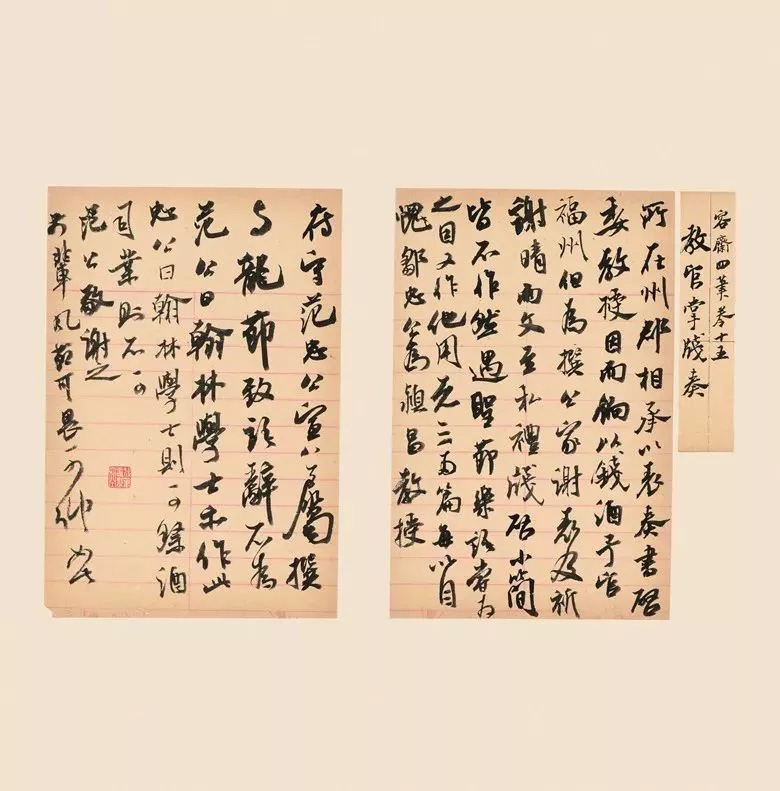 容齋四筆卷十五
教官掌牋奏
所在州郡相承以表奏書啓
委教授因而餉以錢酒予官
福州但為撰公家謝表及祈
謝晴雨文至私禮牋啓小簡
皆不作然遇聖節樂語嘗為
之因又作他用者三兩篇每以自
愧鄒忠公為潁昌教授
府守范忠公宣公屬撰
興龍節致語辭不為
范公曰翰林學士亦作此
忠公曰翰林學士則可祭酒
司業則不可
范公敬謝之
前輩風節可畏可仰如此